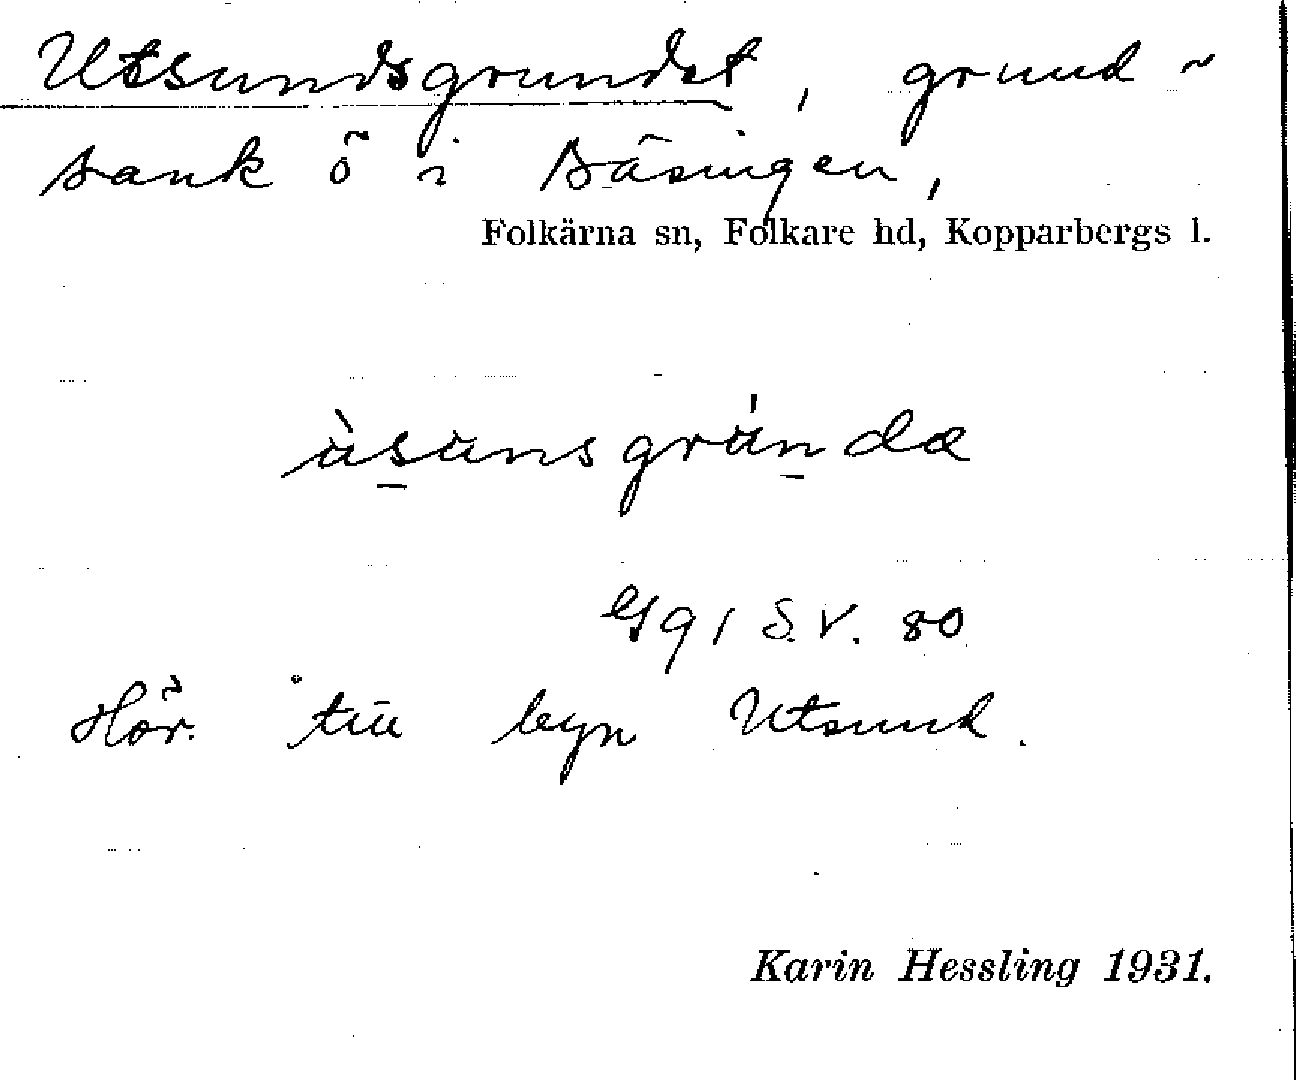 Utsundsgrundet, grund ~
sank ö i Bäsingen,
Folkärna sn, Folkare hd, Kopparbergs l.
ùsunsgrúndæ
Gg 1 S.V. 80
Hör. till byn Utsund.
Karin Hessling 1931.